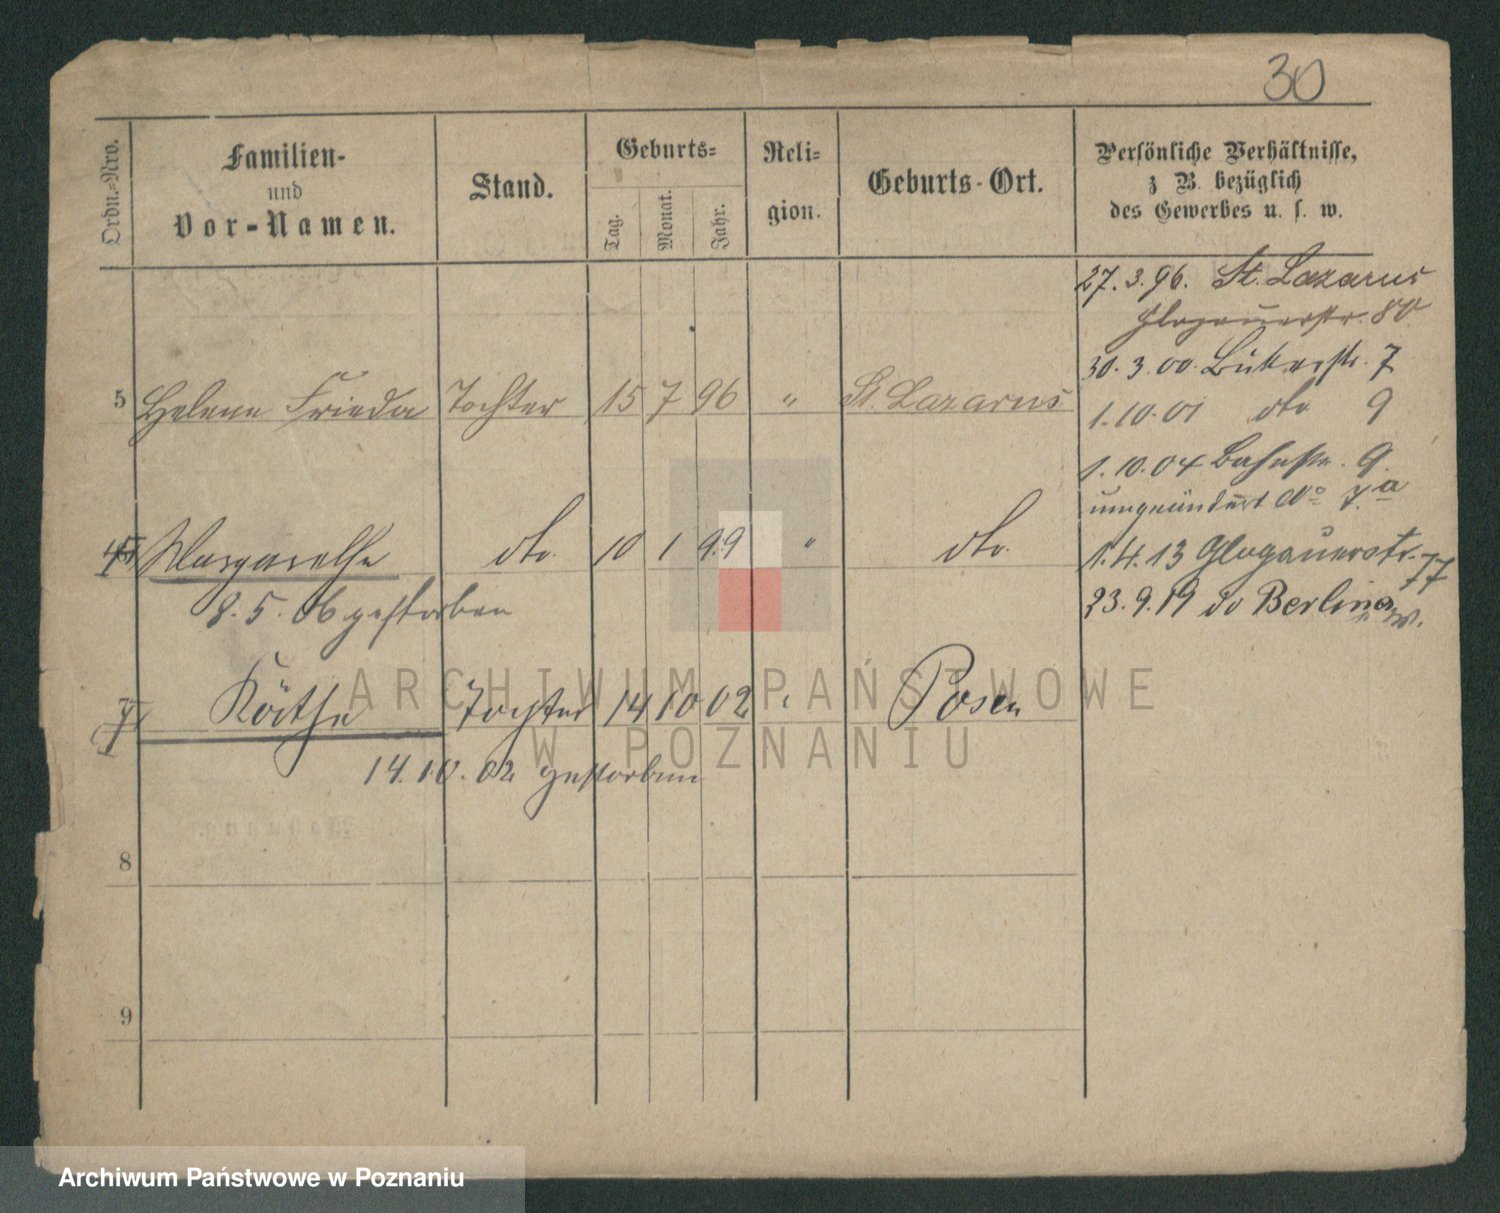 30
Ordn.=Nro.
Familien-
und
Vor-Namen.
Stand.
Geburts=
Tag.
Monat.
Jahr.
Reli=
gion.
Geburts-Ort.
Persönliche Verhältnisse,
z B. bezüglich
des Gewerbes u. s. w.
27. 3. 96. St. Lazarus
Glogauerstr. 80
30. 3. 00. Bukerstr. 7
1. 10. 01 dto 9
1. 10. 04 Bahnstr. 9.
umgeändert No 7a
1. 4. 13 Glogauerstr. 77
23. 9. 19 do Berlin
5 Helene Frieda Tochter 15 7 96 " St. Lazarus
Margarethe dto. 10 1 99 " dto.
8. 5. 06 gestorben
7 Käthe Tochter 14 10 02 " Posen
14. 10. 02 gestorben
8
9
ARCHIWUM PAŃSTWOWE
W POZNANIU
Archiwum Państwowe w Poznaniu